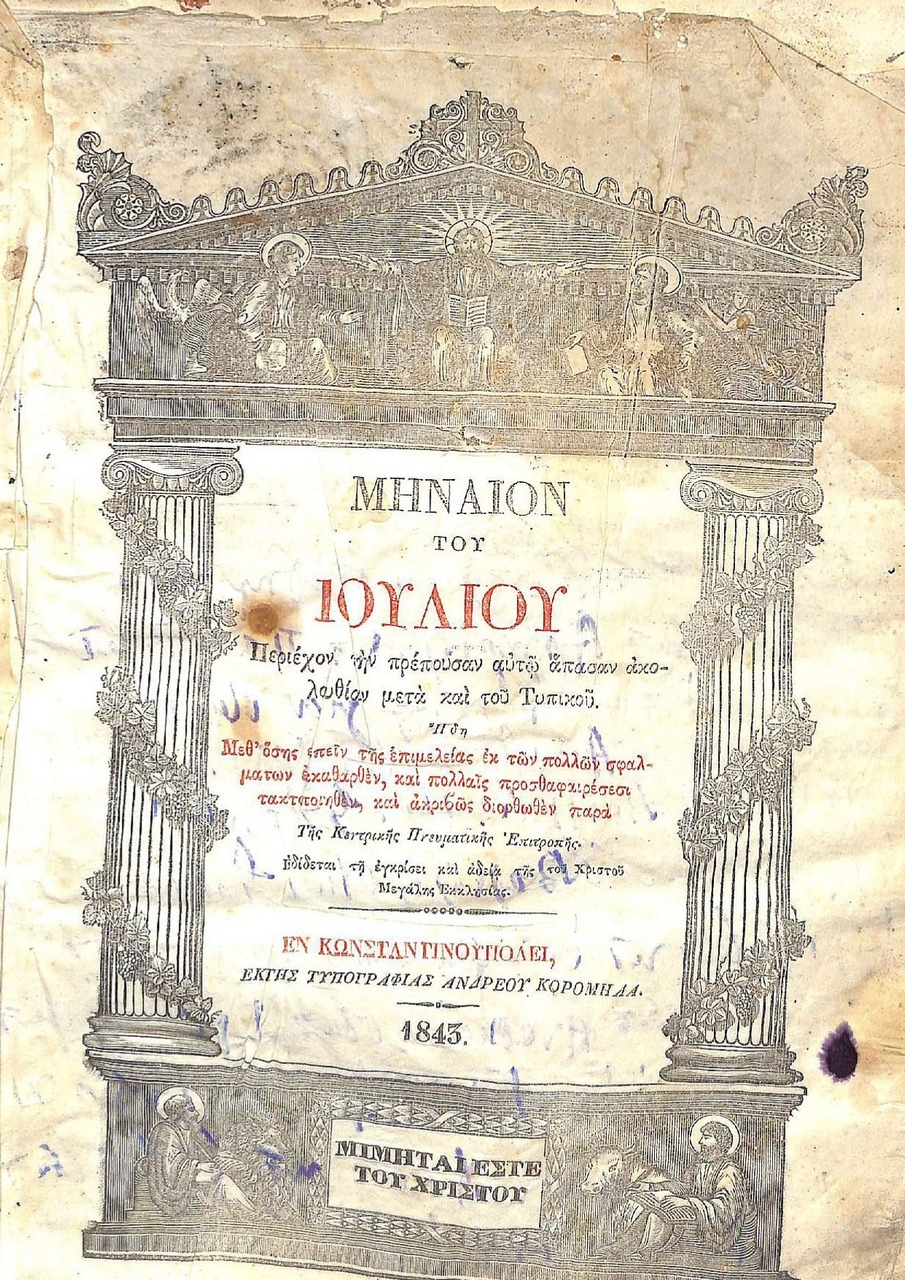 ΜΗΝΑΙΟΝ
ΤΟΥ
ΙΟΥΛΙΟΥ
Περιέχον τὴν πρέπουσαν αὐτῷ ἅπασαν ἀκο-
λουθίαν μετὰ καὶ τοῦ Τυπικοῦ.
Ἤδη
Μεθ' ὅσης εἰπεῖν τῆς ἐπιμελείας ἐκ τῶν πολλῶν σφαλ-
μάτων ἐκκαθαρθὲν, καὶ πολλαῖς προσθαφαιρέσεσι
τακτοποιηθὲν, καὶ ἀκριβῶς διορθωθὲν παρὰ
Τῆς Κεντρικῆς Πνευματικῆς Ἐπιτροπῆς.
Ἐδίδεται τῇ ἐγκρίσει καὶ ἀδείᾳ τῆς τοῦ Χριστοῦ
Μεγάλης Ἐκκλησίας.
ΕΝ ΚΩΝΣΤΑΝΤΙΝΟΥΠΟΛΕΙ,
ΕΚΤΗΣ ΤΥΠΟΓΡΑΦΙΑΣ ΑΝΔΡΕΟΥ ΚΟΡΟΜΗΛΑ.
1843.
ΜΙΜΗΤΑΙ ΕΣΤΕ
ΤΟΥ ΧΡΙΣΤΟΥ